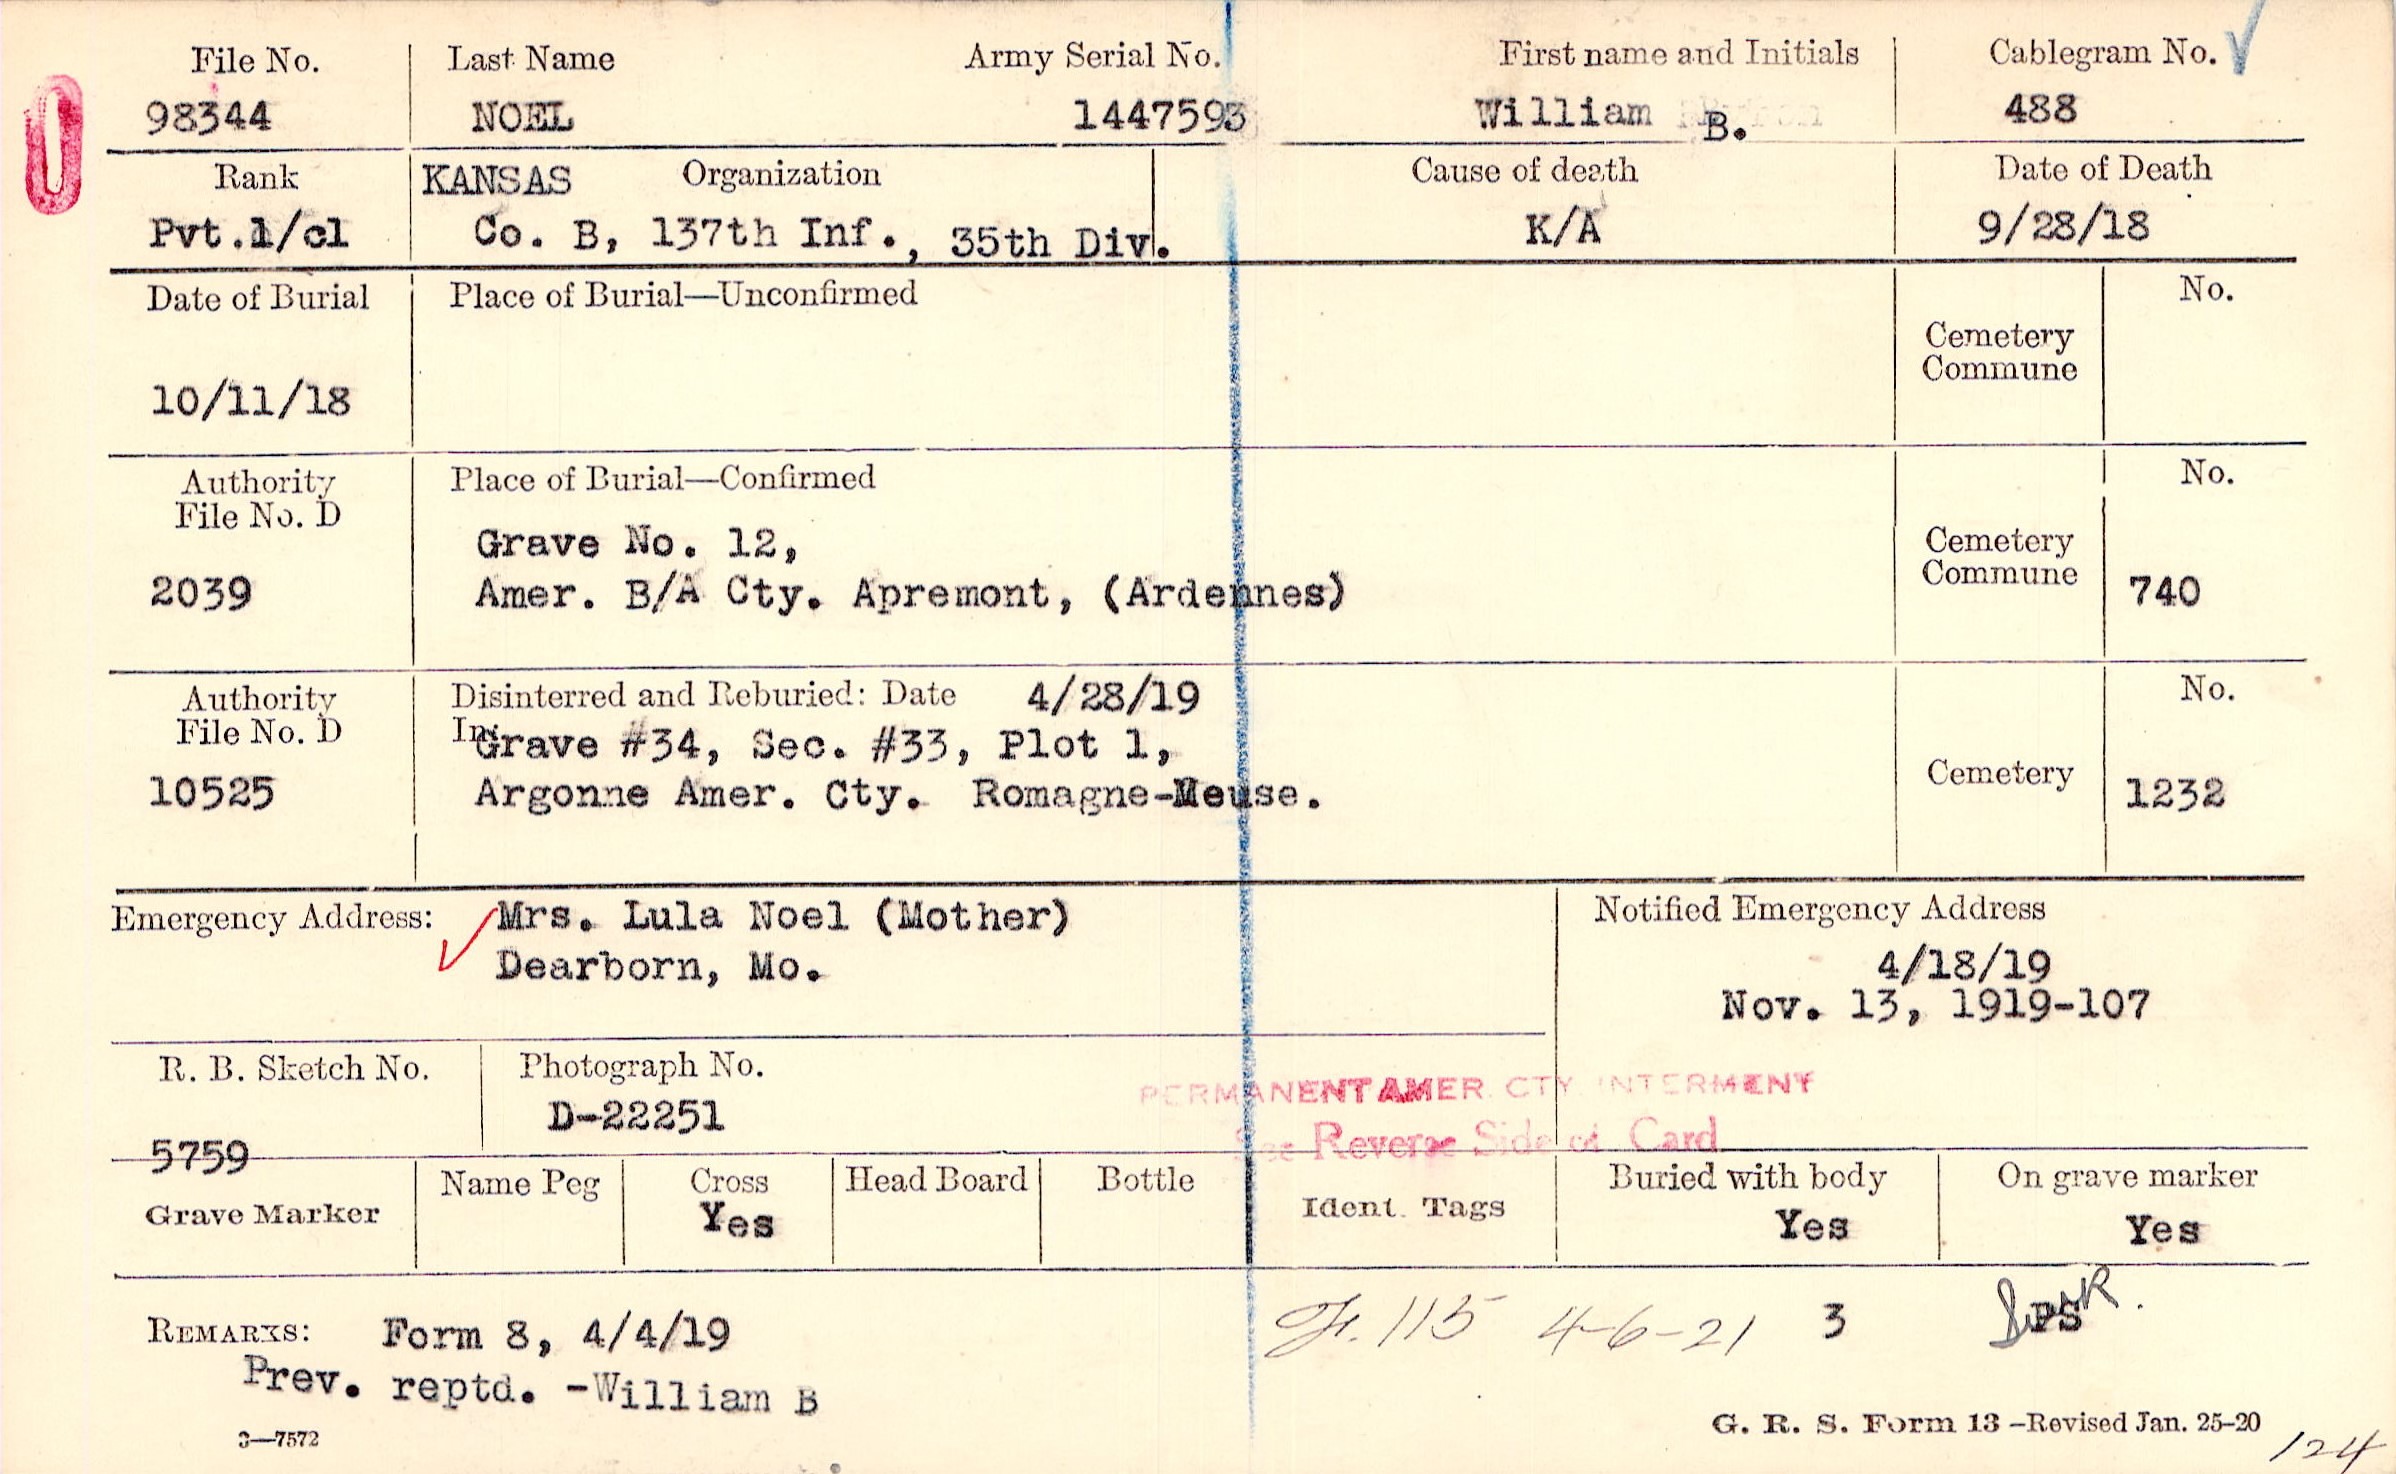 File No. Last Name Army Serial No. First name and Initials Cablegram No.
98344 NOEL 1447593 William B. 488
Rank KANSAS Organization Cause of death Date of Death
Pvt.1/cl Co. B, 137th Inf., 35th Div. K/A 9/28/18
Date of Burial Place of Burial—Unconfirmed No.
Cemetery
Commune
10/11/18
Authority Place of Burial—Confirmed No.
File No. D
Grave No. 12, Cemetery
Commune
2039 Amer. B/A Cty. Apremont, (Ardennes) 740
Authority Disinterred and Reburied: Date 4/28/19 No.
File No. D In: Grave #34, Sec. #33, Plot 1,
10525 Argonne Amer. Cty. Romagne-Meuse. Cemetery 1232
Emergency Address: Mrs. Lula Noel (Mother) Notified Emergency Address
Dearborn, Mo. 4/18/19
Nov. 13, 1919-107
R. B. Sketch No. Photograph No.
PERMANENT AMER. CTY. INTERMENT
D-22251
See Reverse Side of Card
5759
Name Peg Cross Head Board Bottle Buried with body On grave marker
Grave Marker Yes Ident. Tags Yes Yes
REMARKS: Form 8, 4/4/19 115 4-6-21 3 PS
Prev. reptd. -William B
3—7572 G. R. S. Form 13 –Revised Jan. 25–20
124